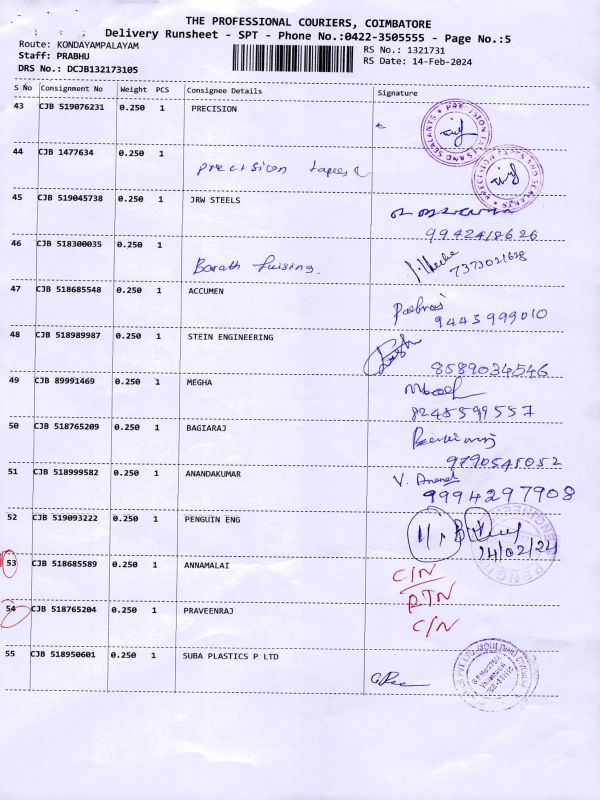 THE PROFESSIONAL COURIERS, COIMBATORE
Delivery Runsheet - SPT - Phone No.:0422-3505555 - Page No.:5
Route: KONDAYAMPALAYAM RS No.: 1321731
Staff: PRABHU RS Date: 14-Feb-2024
DRS No.: DCJB132173105
S No Consignment No Weight PCS Consignee Details Signature
43 CJB 519076231 0.250 1 PRECISION
44 CJB 1477634 0.250 1
precision tapes
45 CJB 519045738 0.250 1 JRW STEELS
9942418626
46 CJB 518300035 0.250 1
Barath 7373021628
47 CJB 518685548 0.250 1 ACCUMEN
9443999010
48 CJB 518989987 0.250 1 STEIN ENGINEERING
8589034546
49 CJB 89991469 0.250 1 MEGHA
8248599557
50 CJB 518765209 0.250 1 BAGIARAJ
9790545052
51 CJB 518999582 0.250 1 ANANDAKUMAR V. Anand
9994297908
52 CJB 519093222 0.250 1 PENGUIN ENG
14/02/24
53 CJB 518685589 0.250 1 ANNAMALAI C/N
RTN
54 CJB 518765204 0.250 1 PRAVEENRAJ C/N
55 CJB 518950601 0.250 1 SUBA PLASTICS P LTD